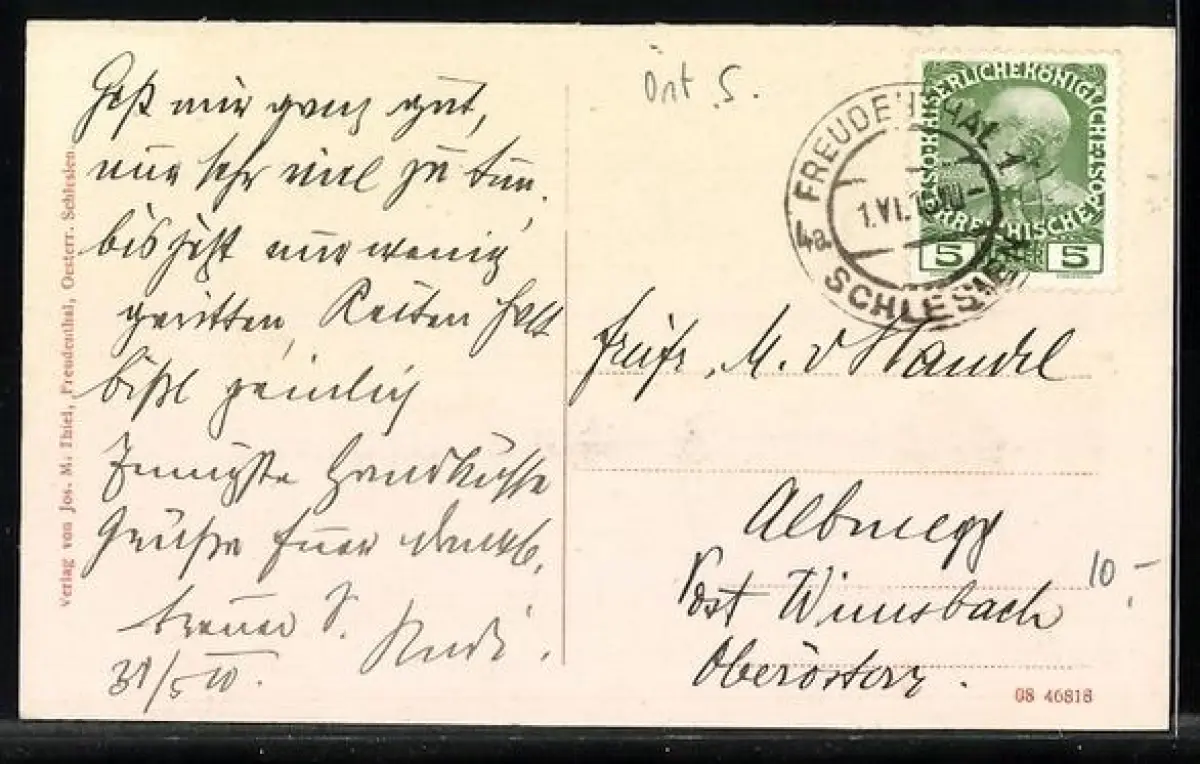 Geht mir ganz gut,
nur sehr viel zu tun,
bis jetzt nur wenig
geritten, Reiten halt
bißl peinlich
Innigste Handküsse
Grüße Euer dankb.
treuer S. Rudi.
31/5 10.
Verlag von Jos. M. Thiel, Freudenthal, Oesterr. Schlesien.
Ort S.
FREUDENTHAL 1
1.VI.10
4a
SCHLESIEN
KAISERLICHE KÖNIGLICHE ÖSTERREICHISCHE POST
5 5
M. v Handel
Post Wimsbach
Oberösterr.
10 -
08 46818